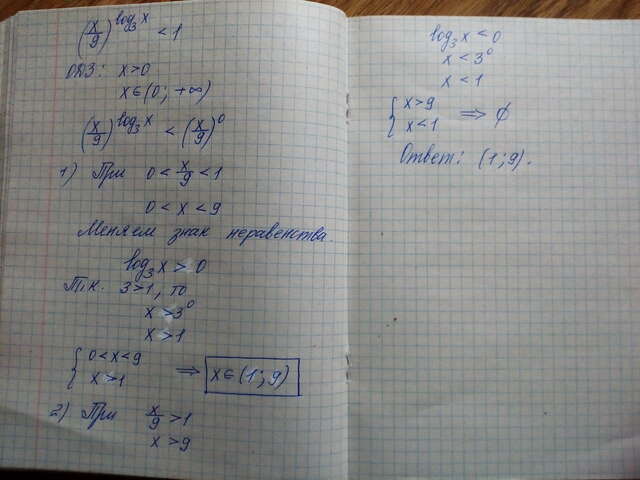 (x/9)^log₃x < 1
ОДЗ: x>0
x∈(0; +∞)
(x/9)^log₃x < (x/9)^0
1) При 0 < x/9 < 1
0 < x < 9
Меняем знак неравенства.
log₃x > 0
Т.к. 3>1, то
x > 3^0
x > 1
{ 0<x<9
x>1 ⇒ x∈(1; 9)
2) При x/9 > 1
x > 9
log₃x < 0
x < 3^0
x < 1
{ x>9
x<1 ⇒ ∅
Ответ: (1; 9).